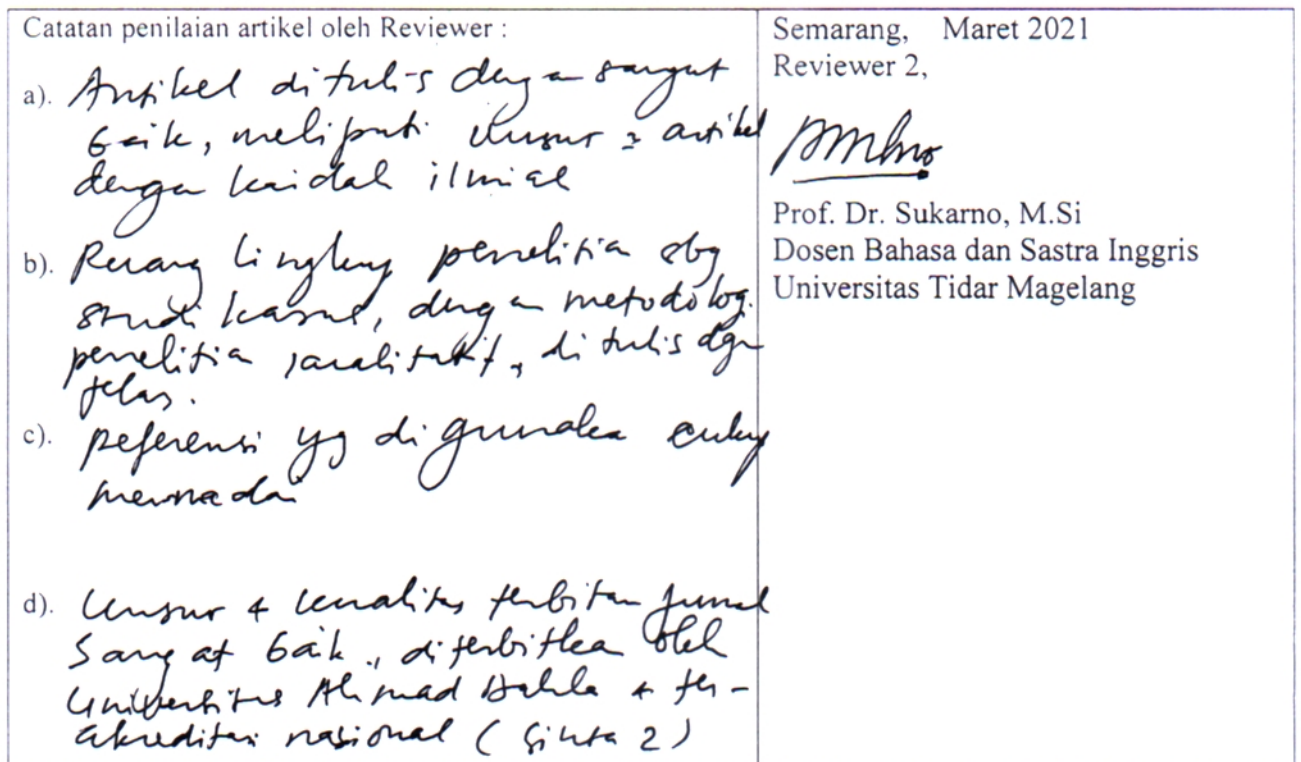 Catatan penilaian artikel oleh Reviewer :
a). Artikel ditulis dengan sangat
baik, meliputi unsur2 artikel
dengan kaidah ilmiah
b). Ruang lingkup penelitian sbg
studi kasus, dengan metodologi
penelitian kualitatif, ditulis dgn
jelas.
c). Referensi yg digunakan cukup
memadai
d). Unsur & kualitas terbitan jurnal
Sangat baik, diterbitkan oleh
Universitas Ahmad Dahlan & ter-
akreditasi nasional (Sinta 2)
Semarang, Maret 2021
Reviewer 2,
Prof. Dr. Sukarno, M.Si
Dosen Bahasa dan Sastra Inggris
Universitas Tidar Magelang